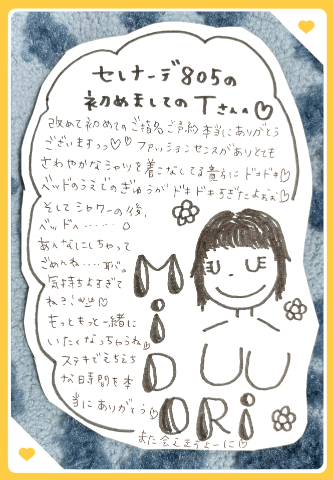 セレナーデ805の
初めましてのTさん♡
改めて初めてのご指名ご予約本当にありがとう
ございますっっ♡ファッションセンスがありとても
さわやかなシャツを着こなしてる貴方にドキドキ♡
ベッドのうえでのぎゅうがドキドキちぎたよぉぉ♡
そしてシャワーの後、
ベッドへ……。
あんなにしちゃって
ごめんね…
気持ちよすぎて
ねっ!
もっともっと一緒に
いたくなっちゃうね
ステキでえちえち
な時間を本
当にありがとう♡
MiDORi
また会えますよーに♡